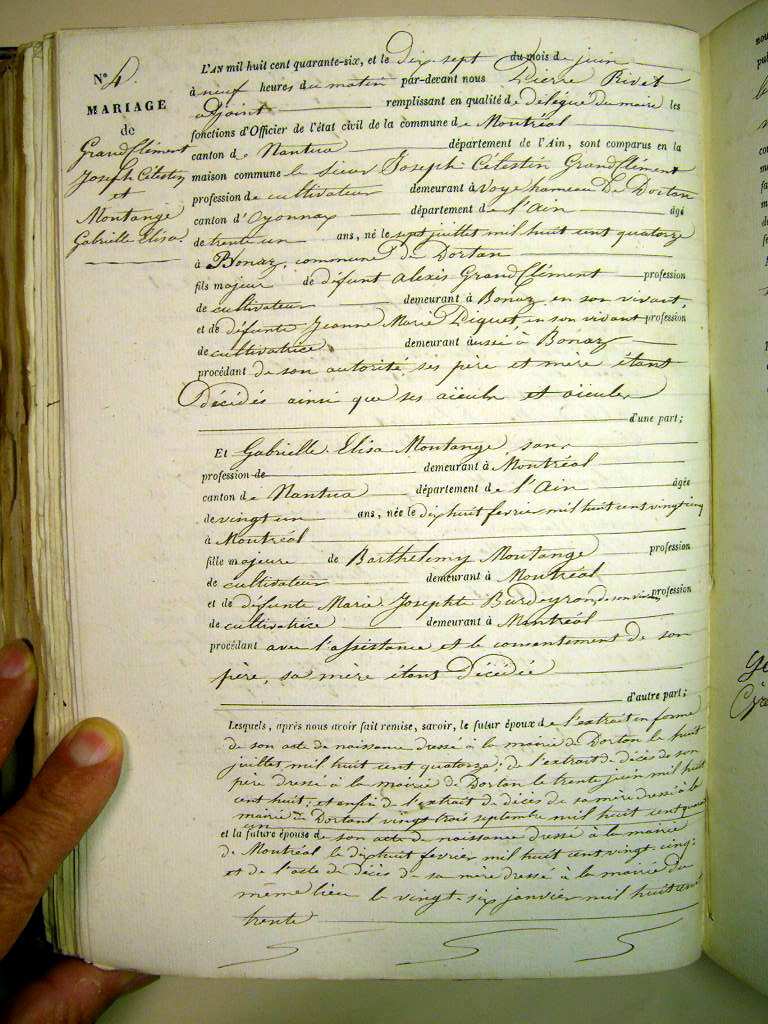 N° 4.
MARIAGE
de
GrandClément
Joseph Célestin
et
Montange
Gabrielle Elisa.
L'AN mil huit cent quarante-six, et le dix sept du mois de juin
à neuf heures du matin par-devant nous Pierre Rivet
adjoint remplissant en qualité de délégué du maire les
fonctions d'Officier de l'état civil de la commune de Montréal
canton de Nantua département de l'Ain, sont comparus en la
maison commune le sieur Joseph Célestin GrandClément
profession de cultivateur demeurant à Voye hameau De Dortan
canton d'Oyonnax département de l'Ain âgé
de trente un ans, né le sept juillet mil huit cent quatorze
à Bonaz, commune de Dortan
fils majeur de défunt Alexis GrandClément profession
de cultivateur demeurant à Bonaz en son vivant,
et de défunte Jeanne Marie Piquet, en son vivant profession
de cultivatrice demeurant aussi à Bonaz
procédant de son autorité ses père et mère étant
Décédés ainsi que ses aïeuls et aïeules
d'une part;
ET Gabrielle Elisa Montange sans
profession de demeurant à Montréal
canton de Nantua département de l'Ain âgée
de vingt un ans, née le dix huit fevrier mil huit cent vingt cinq
à Montréal
fille majeure de Barthelemy Montange profession
de cultivateur demeurant à Montréal
et de défunte Marie Josephte Burdeyron de son vivant profession
de cultivatrice demeurant à Montréal
procédant avec l'assistance et le consentement de son
père, sa mère étant Décédée
d'autre part;
Lesquels, après nous avoir fait remise, savoir, le futur époux de l'extrait en forme
de son acte de naissance dressé à la mairie de Dortan le huit
juillet mil huit cent quatorze; de l'extrait de décès de son
père dressé à la mairie de Dortan le trente juin mil huit
cent huit; et enfin de l'extrait de décès de sa mère dressé à la
mairie de Dortant vingt trois septembre mil huit cent quarante
un
et la future épouse de son acte de naissance dressé à la mairie
de Montréal le dix huit fevrier mil huit cent vingt-cinq.
et de l'acte de décès de sa mère dressé à la mairie du
même lieu le vingt-six janvier mil huit cent
trente